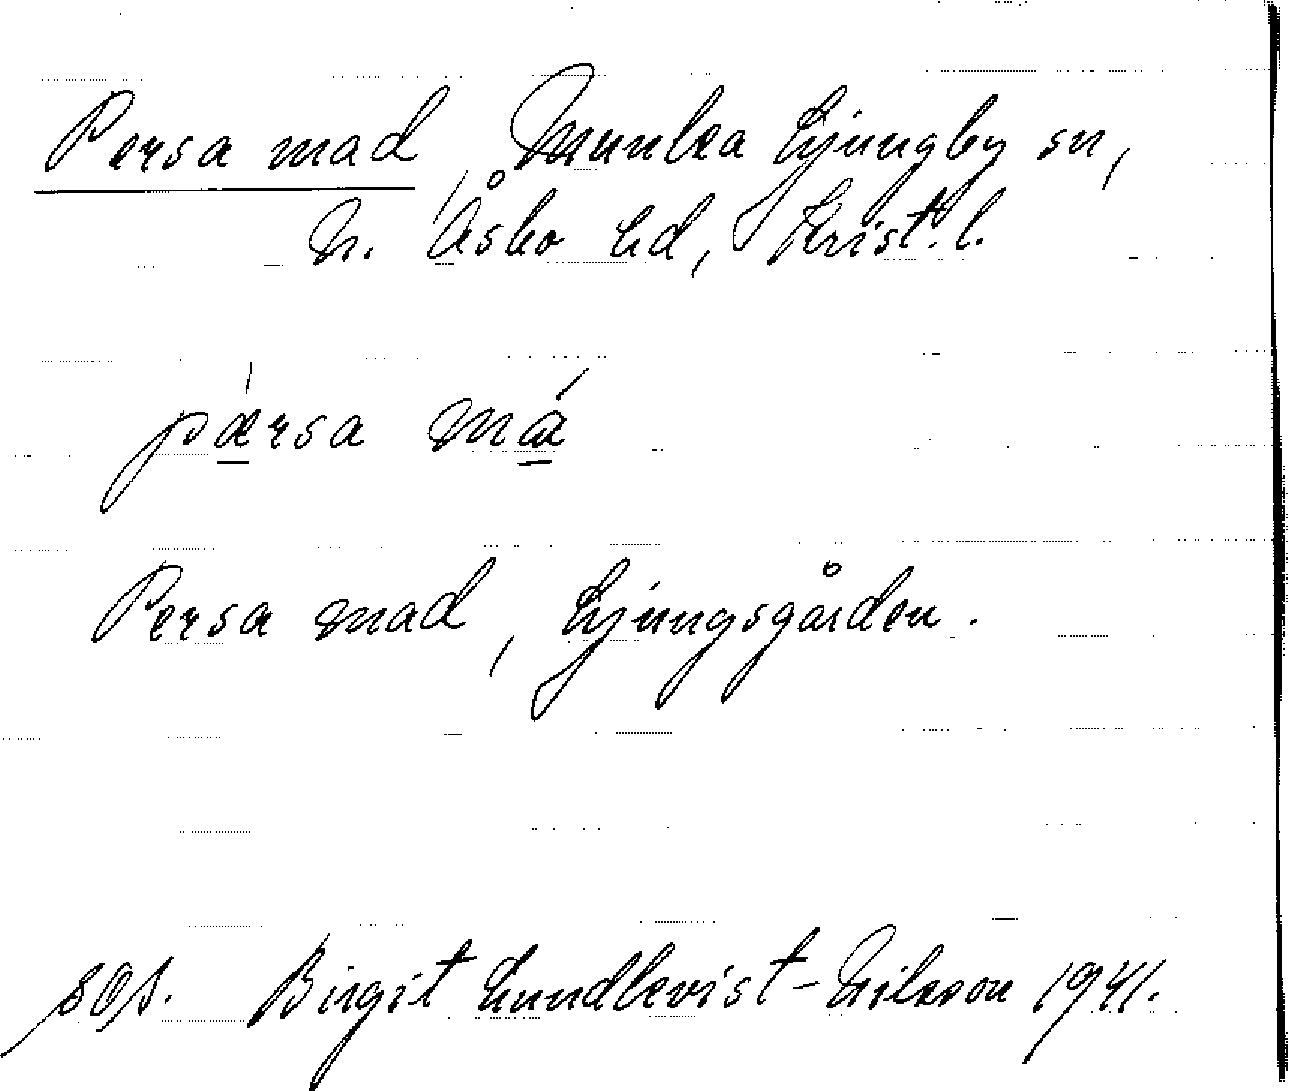 Persa mad, Munka Ljungby sn,
N. Åsbo hd, Krist. l.
pærsa má
Persa mad, Ljungsgården.
Birgit Lundkvist-Nilsson 1941.